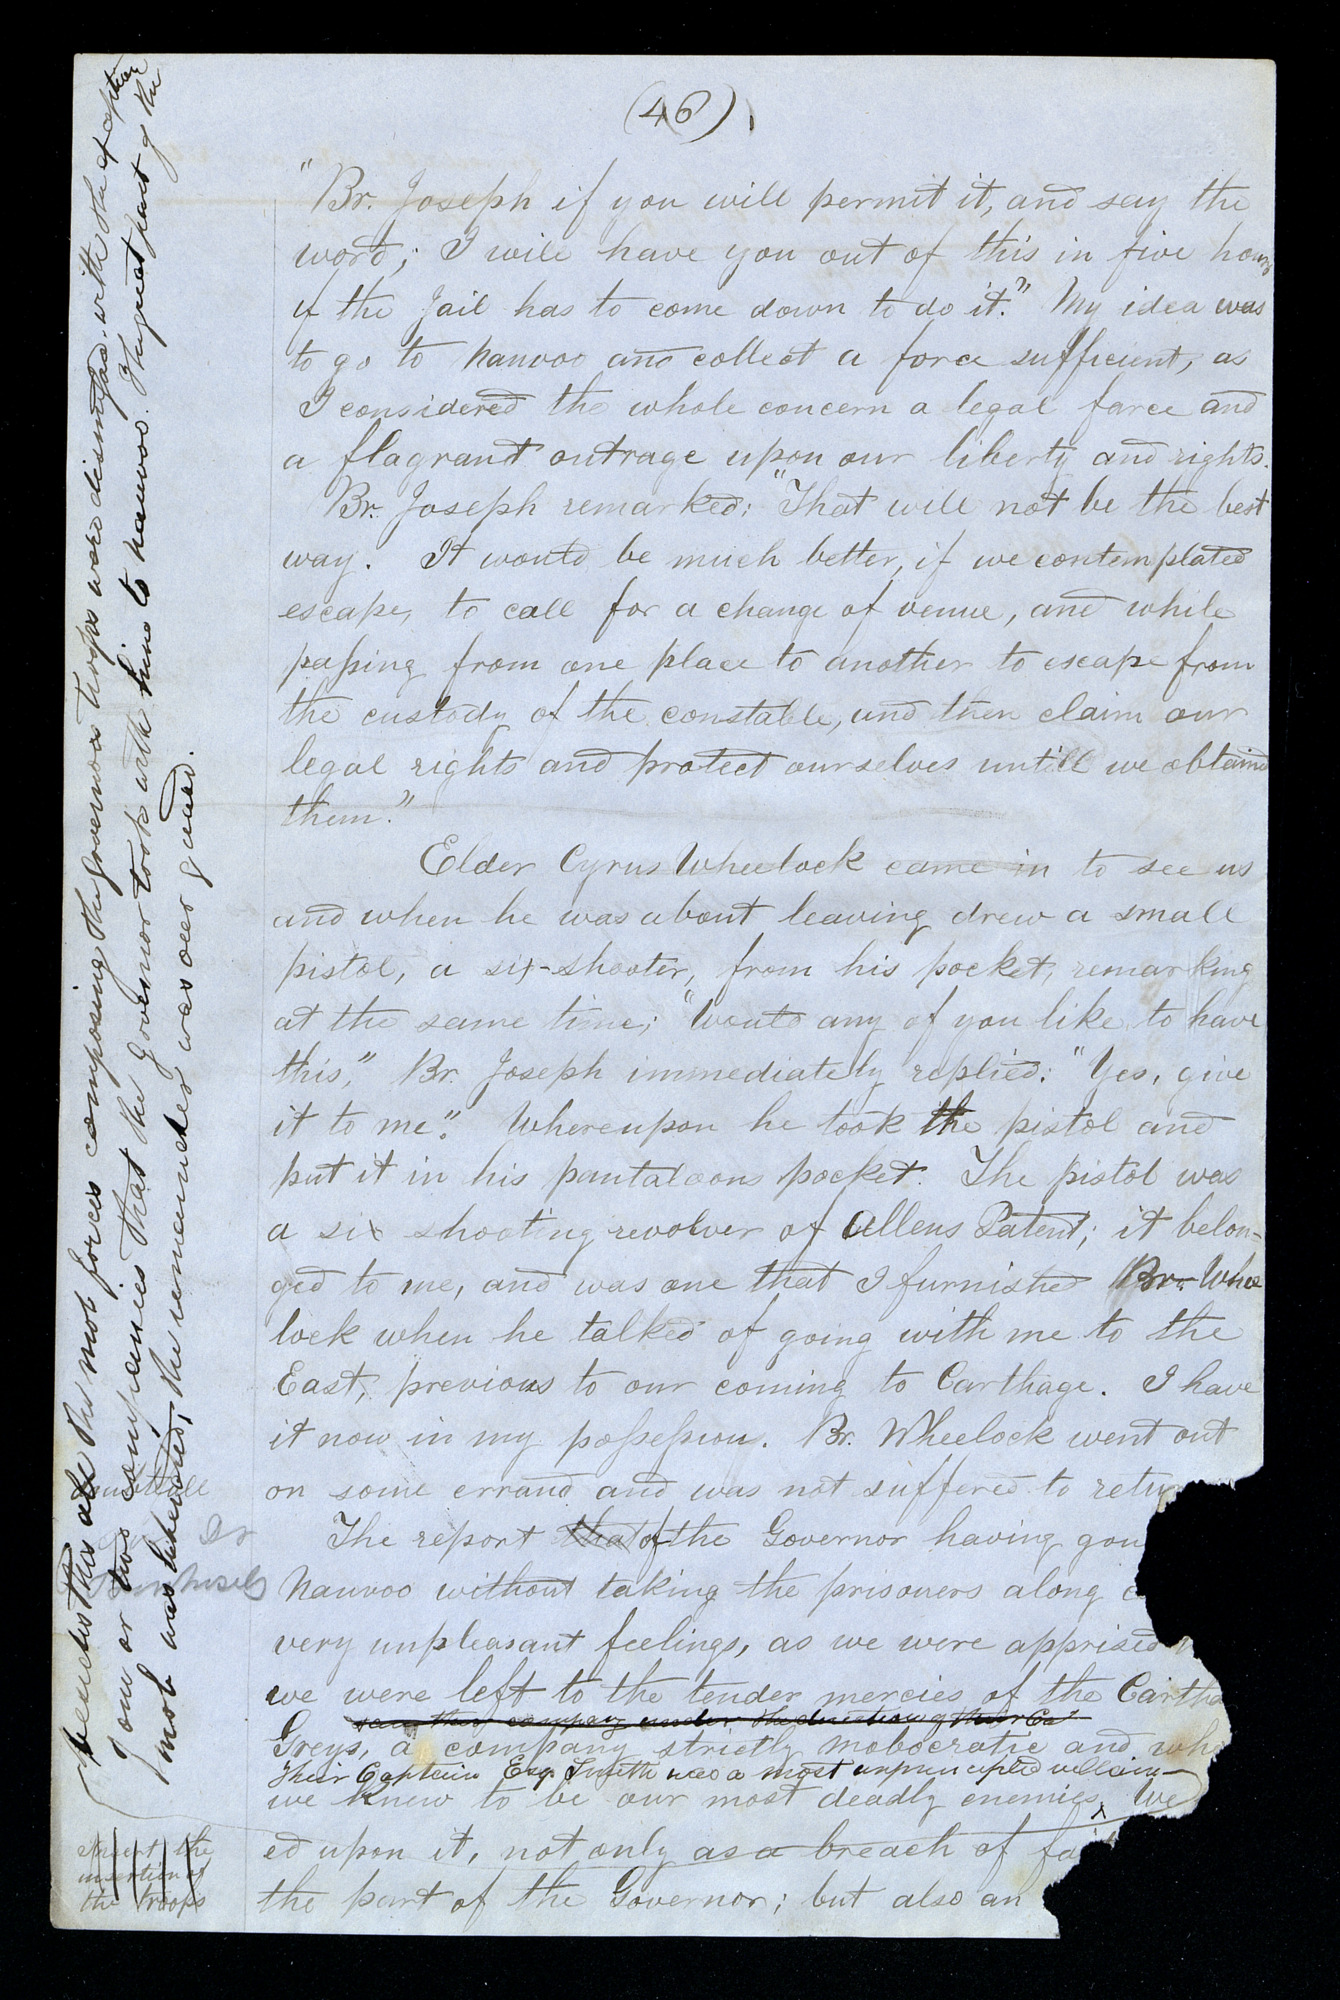 (46)
"Br. Joseph if you will permit it, and say the
word; I will have you out of this in five hours
if the Jail has to come down to do it." My idea was
to go to Nauvoo and collect a force sufficient, as
I considered the whole concern a legal farce and
a flagrant outrage upon our liberty and rights.
Br. Joseph remarked; "That will not be the best
way. It would be much better, if we contemplated
escape, to call for a change of venue, and while
passing from one place to another to escape from
the custody of the constable, and then claim our
legal rights and protect ourselves untill we obtained
them."
Elder Cyrus Wheelock came in to see us
and when he was about leaving drew a small
pistol, a six-shooter, from his pocket, remarking
at the same time; "Would any of you like to have
this," Br. Joseph immediately replied: "Yes, give
it to me." Whereupon he took the pistol and
put it in his pantaloons pocket. The pistol was
a six shooting revolver of Allens Patent; it belon-
ged to me, and was one that I furnished Br. Whee
lock when he talked of going with me to the
East, previous to our coming to Carthage. I have
it now in my possession. Br. Wheelock went out
on some errand and was not suffered to retur
The report that of the Governor having gon
Nauvoo without taking the prisoners along
very unpleasant feelings, as we were apprised
we were left to the tender mercies of the Cartha
Greys, a company strictly mobocratic and wh
Their Captain Esq. Smith was a most unprincipled villain
we knew to be our most deadly enemies, We
ed upon it, not only as a breach of fai
the part of the Governor; but also an
besides this all the mob forces composing the Governors troops were dismissed with the exception
of one or two companies that the Governor took with him to Nauvoo. The great part of the
mob was liberated, the remainder was our guard.
insert the
insertion of
the troops